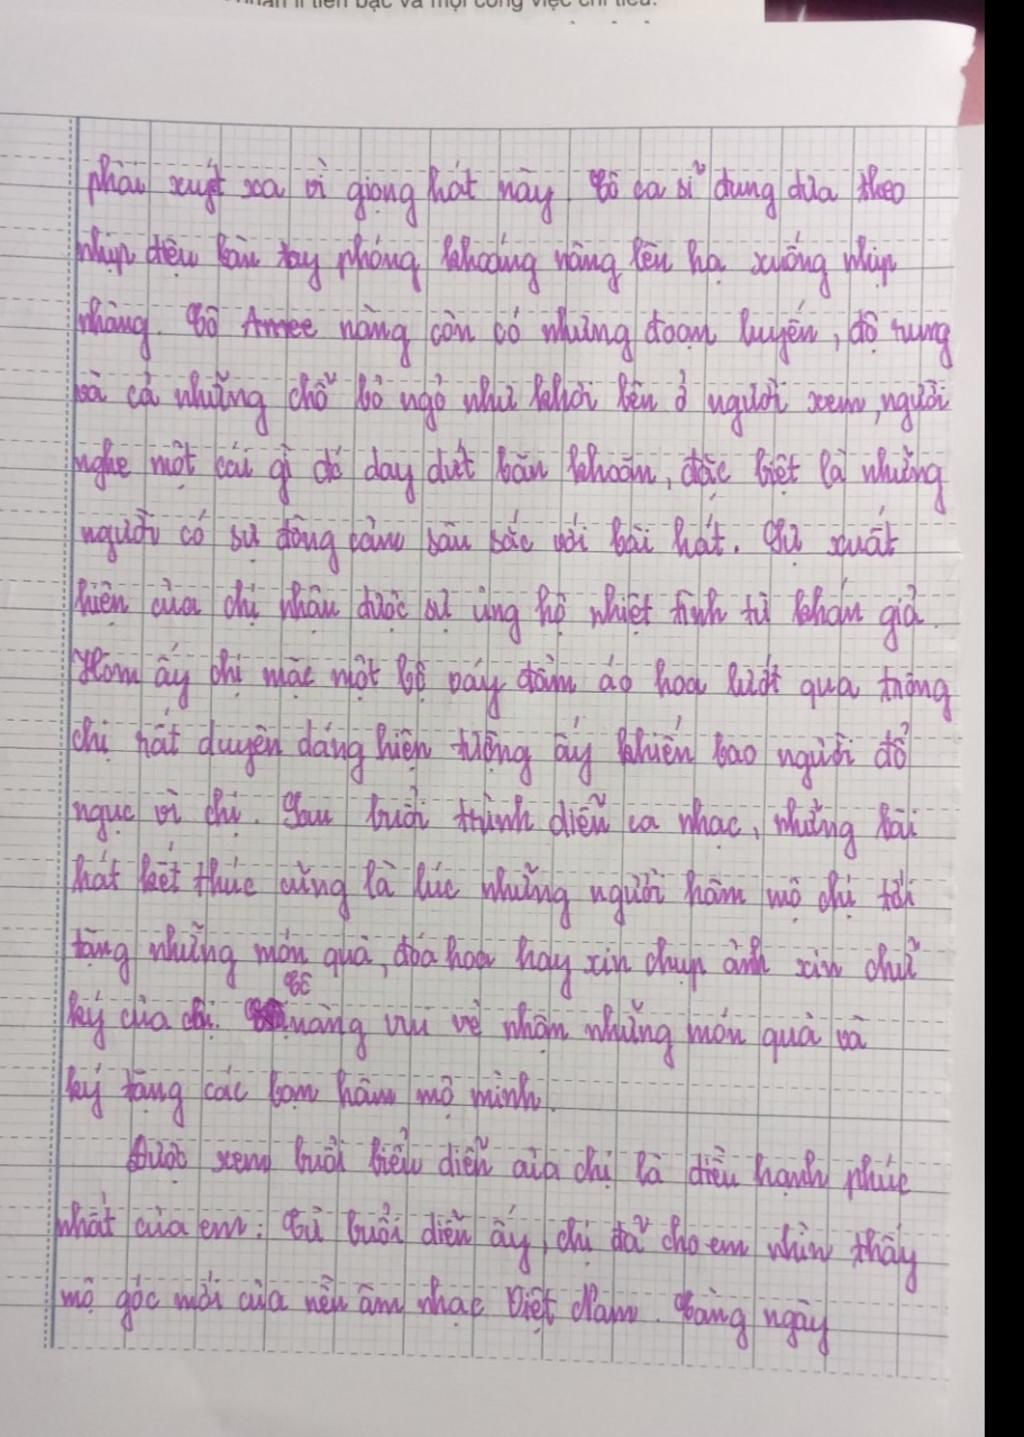 nhân lí tiền bạc và mọi công việc chi tiêu.
phải xuýt xoa vì giọng hát này. Cô ca sĩ đung đưa theo
nhịp điệu bàn tay phóng khoáng nâng lên hạ xuống nhịp
nhàng. Cô Amee nàng còn có những đoạn luyến, độ rung
và cả những chỗ bỏ ngỏ như khơi lên ở người xem, người
nghe một cái gì đó day dứt băn khoăn, đặc biệt là những
người có sự đồng cảm sâu sắc với bài hát. Sự xuất
hiện của chị nhận được sự ủng hộ nhiệt tình từ khán giả.
Hôm ấy chị mặc một bộ váy đầm áo hoa lướt qua trông
chị rất duyên dáng hiện tượng ấy khiến bao người đổ
ngục vì chị. Sau buổi trình diễn ca nhạc, những bài
hát kết thúc cũng là lúc những người hâm mộ chị tới
tặng những món quà, đóa hoa hay xin chụp ảnh xin chữ
ký của chị. Cô nàng vui vẻ nhận những món quà và
ký tặng các bạn hâm mộ mình.
Được xem buổi biểu diễn của chị là điều hạnh phúc
nhất của em. Từ buổi diễn ấy, chị đã cho em nhìn thấy
mộ góc mới của nền âm nhạc Việt Nam. Càng ngày